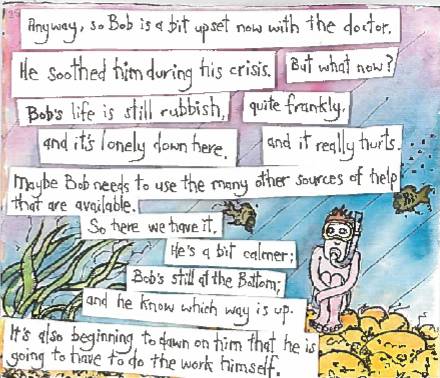 Anyway, so Bob is a bit upset now with the doctor.
He soothed him during his crisis. But what now?
Bob's life is still rubbish, quite frankly,
and it's lonely down here, and it really hurts.
Maybe Bob needs to use the many other sources of help
that are available.
So here we have it.
He's a bit calmer;
Bob's still at the Bottom;
and he know which way is up.
It's also beginning to dawn on him that he is
going to have to do the work himself.